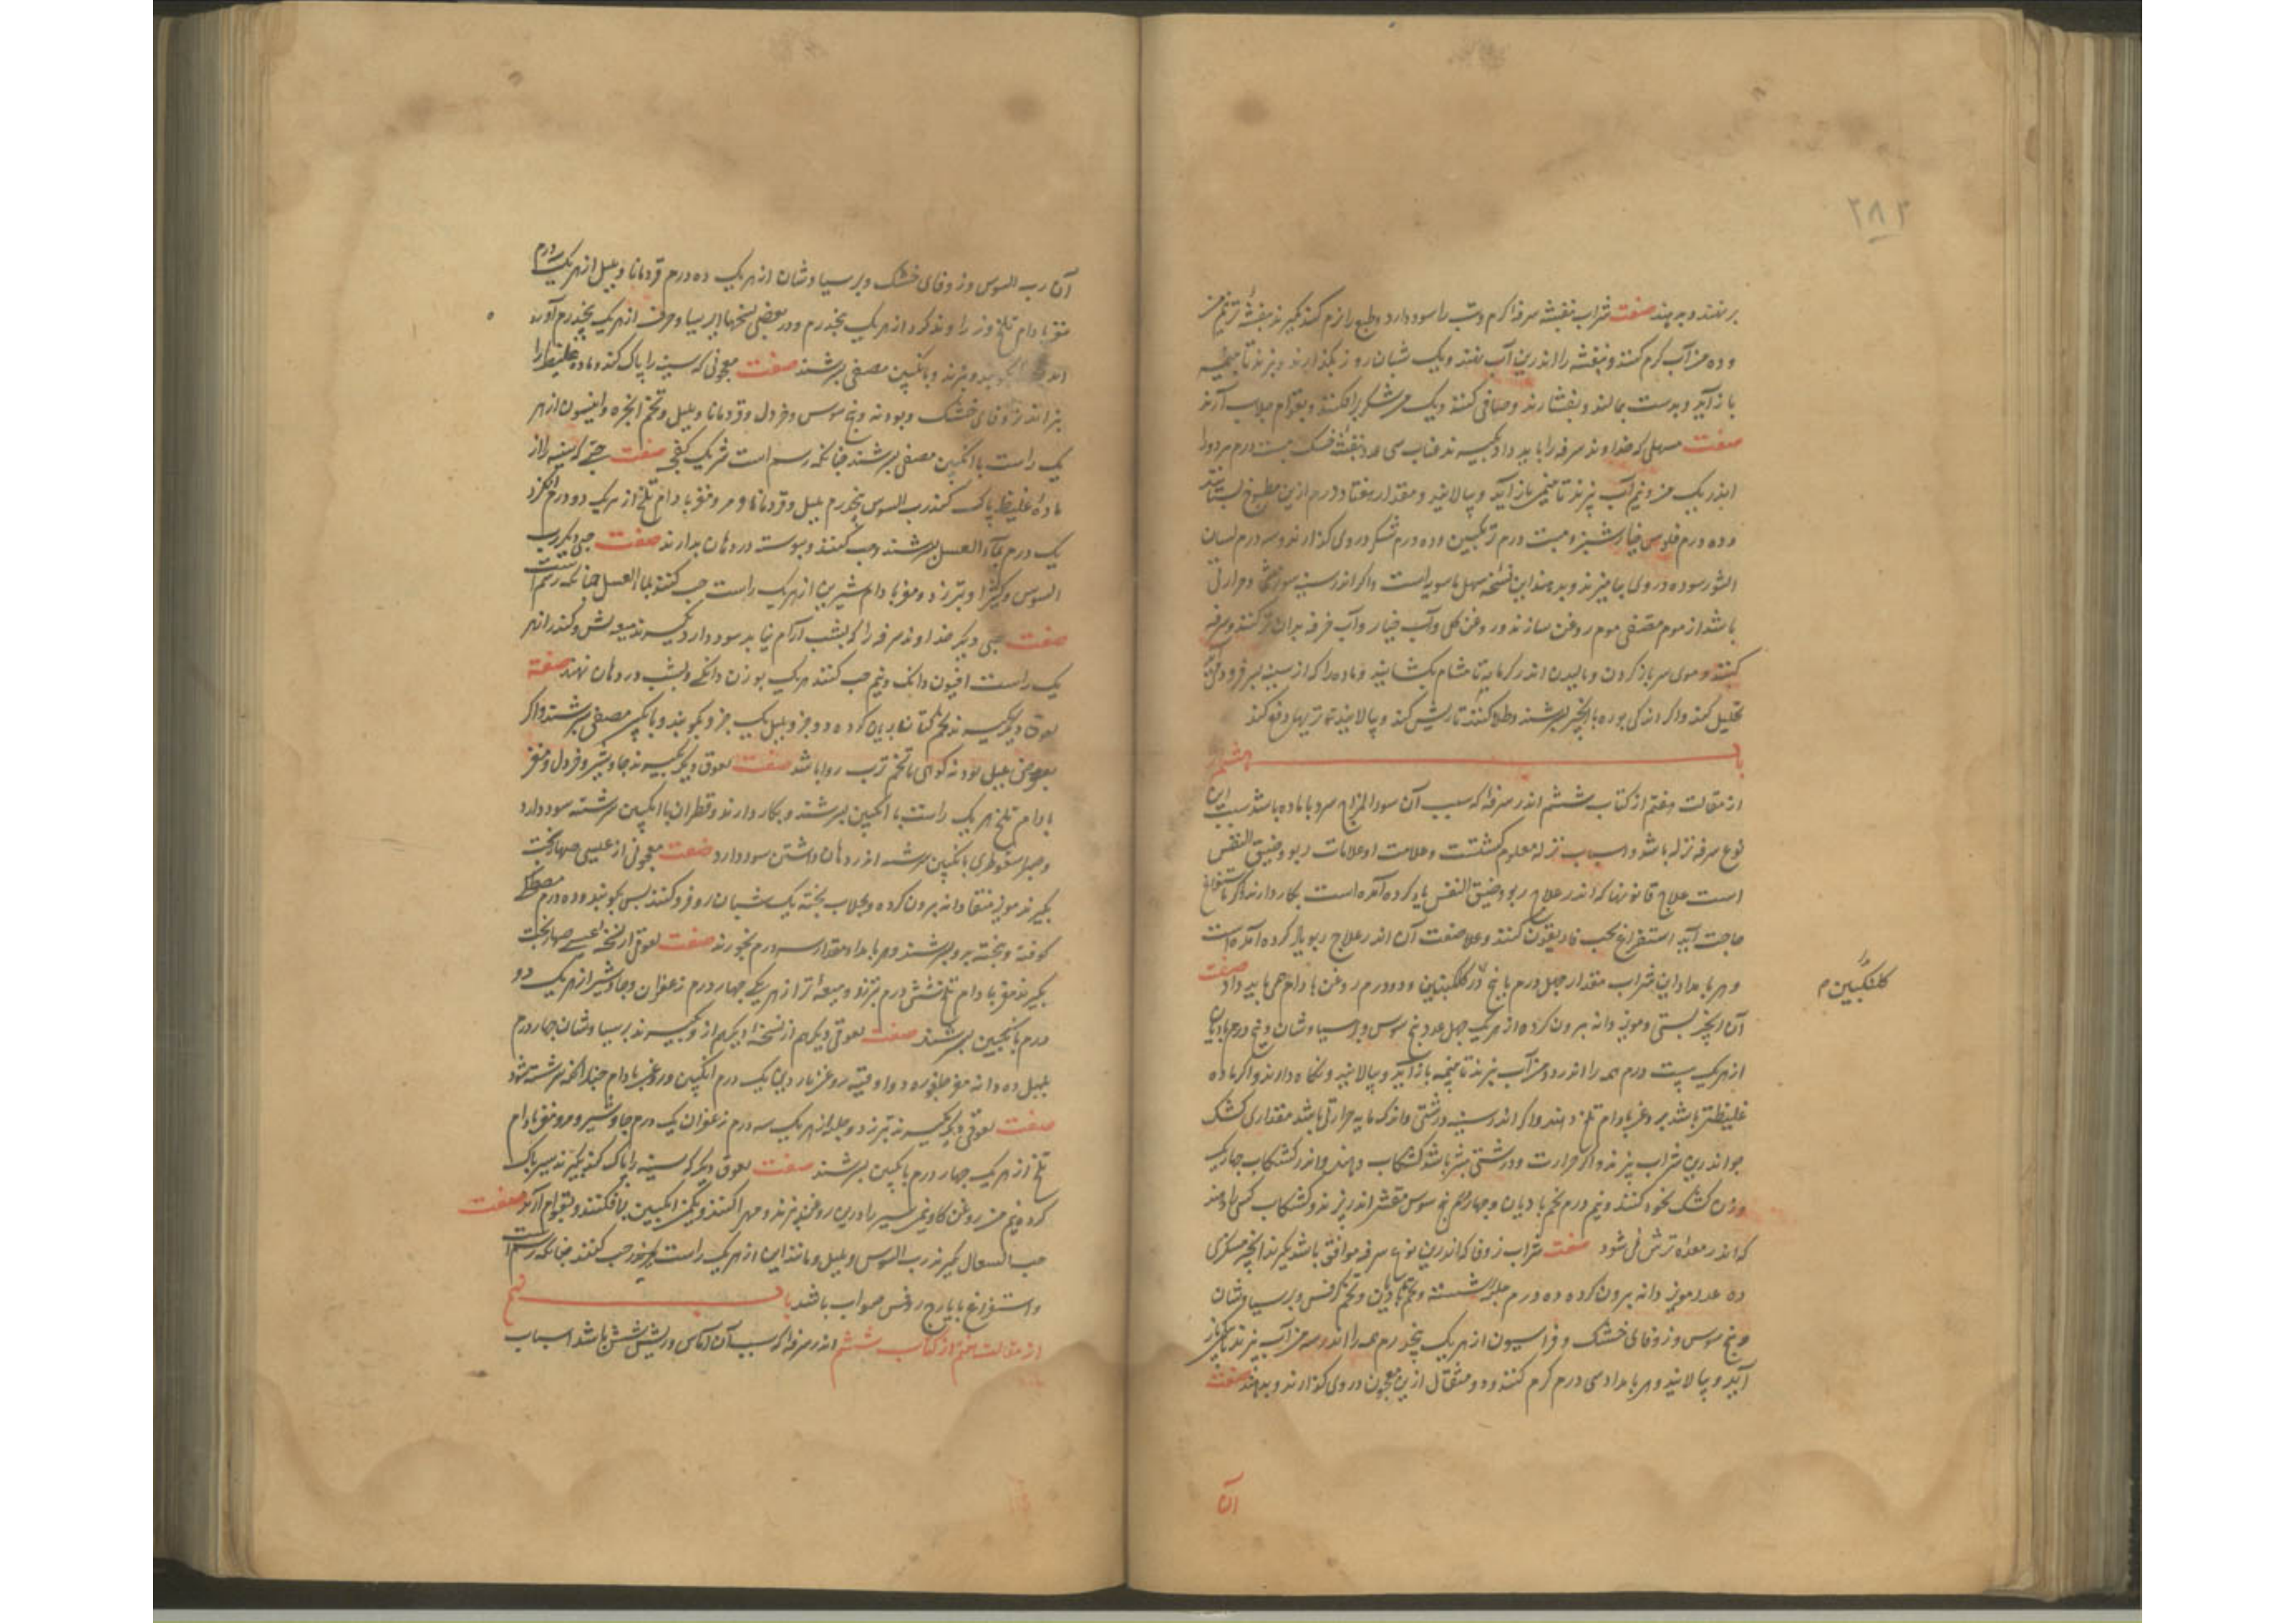 ۲۸۲
برنهند و بدهند صفت شراب بنفشه سرفه گرم و تب را سود دارد و طبع را نرم کند بگیرند بنفشه تر نیم من
و ده من آب گرم کنند و بنفشه را اندرین آب نهند و یک شبان روز بگذارند و بپزند تا به نیمه
باز آید و بدست بمالند و بفشارند و صافی کنند و یک من شکر برافکنند و بقوام جلاب آرند
صفت مسهلی که خداوند سرفه را باید داد بگیرند عناب سی عدد بنفشه خشک بیست درم هر دو را
اندر یک من و نیم آب بپزند تا به نیمی باز آید و بپالایند و مقدار هفتاد درم ازین مطبوخ بستانند
و ده درم فلوس خیارشنبر و بیست درم ترنگبین و ده درم شکر در وی گذارند و سه درم لسان
الثور سوده در وی بیامیزند و بدهند این نسخه سهل ماسویه است و اگر اندر سینه سوزشی و حرارتی
باشد از موم مصفی موم روغن سازند و روغن گل و آب خیار و آب خرفه بدان تر کنند و برنهند
کنند و موی سر باز کردن و مالیدن اندر گرمابه تا مشام بگشاید و ماده را که از سینه بر فرود آید
تحلیل کند و اگر اندکی بوره با انجیر بسرشند و طلا کنند تا ریش کند و بپالاید تمام تریها دفع کند
باب هشتم
از مقالت هفتم از کتاب ششم اندر سرفه که سبب آن سوء المزاج سرد با ماده باشد سبب این
نوع سرفه نزله باشد و اسباب نزله معلوم گشتست و علامت او علامات ربو و ضیق النفس
است علاج قانونها که اندر علاج ربو و ضیق النفس یاد کرده آمده است بکار دارند و اگر باستفراغ
حاجت آید استفراغ بحب غاریقون کنند و علاصفت آن اندر علاج ربو یاد کرده آمده است
و هر بامداد این شراب مقدار چهل درم با پنج درم گلنگبین و دو درم روغن بادام همی باید داد صفت
گلنگبین م
آن انجیر بستی و مویز دانه بیرون کرده از هر یک چهل عدد بیخ سوس و برسیاوشان و بیخ و درم بادیان
از هر یک بیست درم همه را اندر دو من آب بپزند تا به نیمه باز آید و بپالایند و نگاه دارند و اگر ماده
غلیظتر باشد بر روغن بادام تلخ دهند و اگر اندر سینه درشتی و اندک مایه حرارتی باشد مقداری کشک
جو اندرین شراب بپزند و اگر حرارت و درشتی بیشتر باشد کشکاب دهند و اندر کشکاب چهار یک
وزن کشک نخود کنند و نیم درم تخم بادیان و چهار درم بیخ سوس مقشر اندر پزند و کشکاب کسی را دهند
که اندر معده ترش نمی‌شود صفت شراب زوفا که اندرین نوع سرفه موافق باشد بگیرند انجیر عسکری
ده عدد مویز دانه بیرون کرده ده درم حلبه شسته و تخم بادیان و تخم کرفس و برسیاوشان
و بیخ سوس و زوفای خشک و فراسیون از هر یک پنج درم همه را اندر سه من آب بپزند تا بیک من باز
آید و بپالایند و هر بامداد سی درم گرم کنند و دو مثقال ازین معجون در وی گذارند و بدهند صفت
آن
آن رب السوس و زوفای خشک و برسیاوشان از هر یک ده درم قردمانا و پلپل از هر یک سه درم
مغز بادام تلخ و زراوند گرد از هر یک پنج درم و در بعضی نسخها ایرسا و حرف از هر یک پنج درم آورده
اند بکوبند و بپزند و بانگبین مصفی بسرشند صفت معجونی که سینه را پاک کند و ماده غلیظ را
بپزاند زوفای خشک و پودنه و بیخ سوس و خردل و قردمانا و پلپل و تخم انجره و انیسون از هر
یک راست با انگبین مصفی بسرشند چنانکه رسم است شربت یک کفچه صفت حبی که سینه را از
ماده غلیظ پاک کند رب السوس پنج درم پلپل و قردمانا و مر و مغز بادام تلخ از هر یک دو درم انگزد
یک درم بماء العسل بسرشند و حب کنند و پیوسته در دهان بدارند صفت حبی دیگر رب
السوس و کثیرا و تبرزد و مغز بادام شیرین از هر یک راست حب کنند بماء العسل چنانکه رسم است
صفت حبی دیگر خداوند سرفه را که بشب آرام نیابد سود دارد بگیرند میعه لش و کندر از هر
یک راست افیون دانگ و نیم حب کنند هر یک بوزن دانگی و بشب در دهان نهند صفة
لعوق دیگر بگیرند تخم کتان بریان کرده دو جزو و پلپل یک جزو بکوبند و بانگبین مصفی بسرشند و اگر
بعوض پلپل پودنه کوهی یا تخم ترب روا باشد صفت لعوق دیگر بگیرند جاوشیر و خردل و مغز
بادام تلخ هر یک راست با انگبین بسرشند و بکار دارند و قطران با انگبین سرشته سود دارد
و صبر سقوطری بانگبین سرشته اندر دهان داشتن سود دارد صفت معجونی از عیسی صهاربخت
بگیرند مویز منقا دانه بیرون کرده و بجلاب پخته یک شبان روز فرو کنند پس بکوبند و ده درم مصطکی
کوفته و بیخته برو بسرشند و هر بامداد مقدار سه درم بخورند صفت لعوقی از نسخه عیسی صهاربخت
بگیرند مغز بادام تلخ شش درم تبرزد و میعه تر از هر یکی چهار درم زعفران و جاوشیر از هر یک دو
درم بانگبین بسرشند صفت لعوقی دیگر هم از نسخه او بگیرند برسیاوشان چهار درم
پلپل ده دانه مغز چلغوزه دو اوقیه روغن ناردین یک درم انگبین و روغن بادام چندانکه سرشته شود
صفت لعوقی دیگر بگیرند تبرزد و حلبه از هر یک سه درم زعفران یک درم جاوشیر و مر و مغز بادام
تلخ از هر یک چهار درم بانگبین بسرشند صفت لعوق دیگر که سینه را پاک کند بگیرند سیر پاک
کرده نیم من روغن گاو نیم من سیر را درین روغن بپزند و مهرا کنند و یک من انگبین برافکنند و بقوام آرند صفت
حب السعال بگیرند رب السوس و پلپل و مانند این از هر یک راست حب کنند چنانکه رسم است
و استفراغ بایارج روفس صواب باشد باب نهم
از مقالت هفتم از کتاب ششم اندر سرفه که سبب آن آماس و ریش شش باشد اسباب